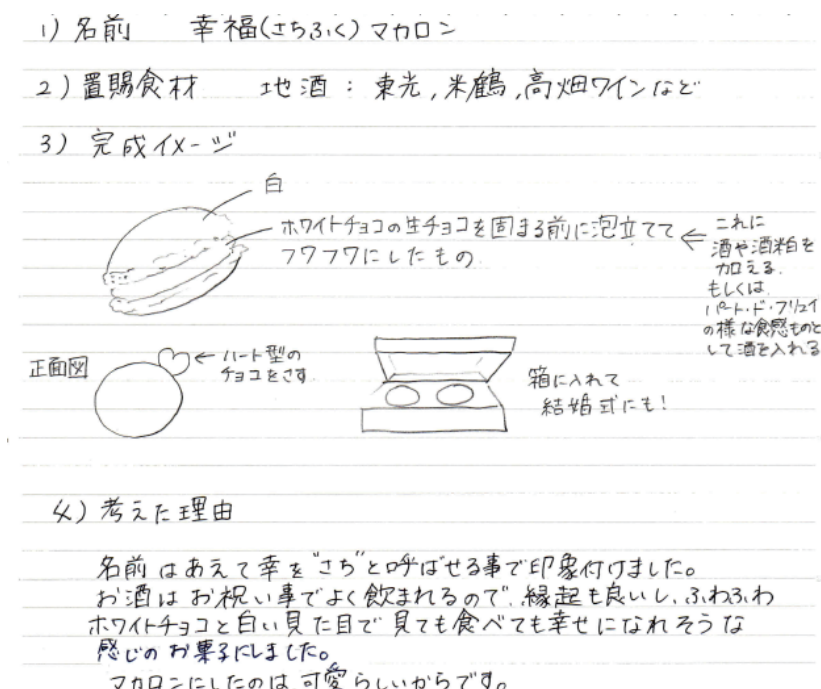 1) 名前 幸福(さちふく)マカロン
2) 置賜食材 地酒：東光,米鶴,高畑ワインなど
3) 完成イメージ
白
ホワイトチョコの生チョコを固まる前に泡立てて
フワフワにしたもの
これに
酒や酒粕を
加える.
もしくは
パート・ド・フリュイ
の様な食感ものと
して酒を入れる
正面図
ハート型の
チョコをさす
箱に入れて
結婚式にも!
4) 考えた理由
名前はあえて幸を"さち"と呼ばせる事で印象付けました。
お酒はお祝い事でよく飲まれるので、縁起も良いし、ふわふわ
ホワイトチョコと白い見た目で見ても食べても幸せになれそうな
感じのお菓子にしました。
マカロンにしたのは可愛らしいからです。